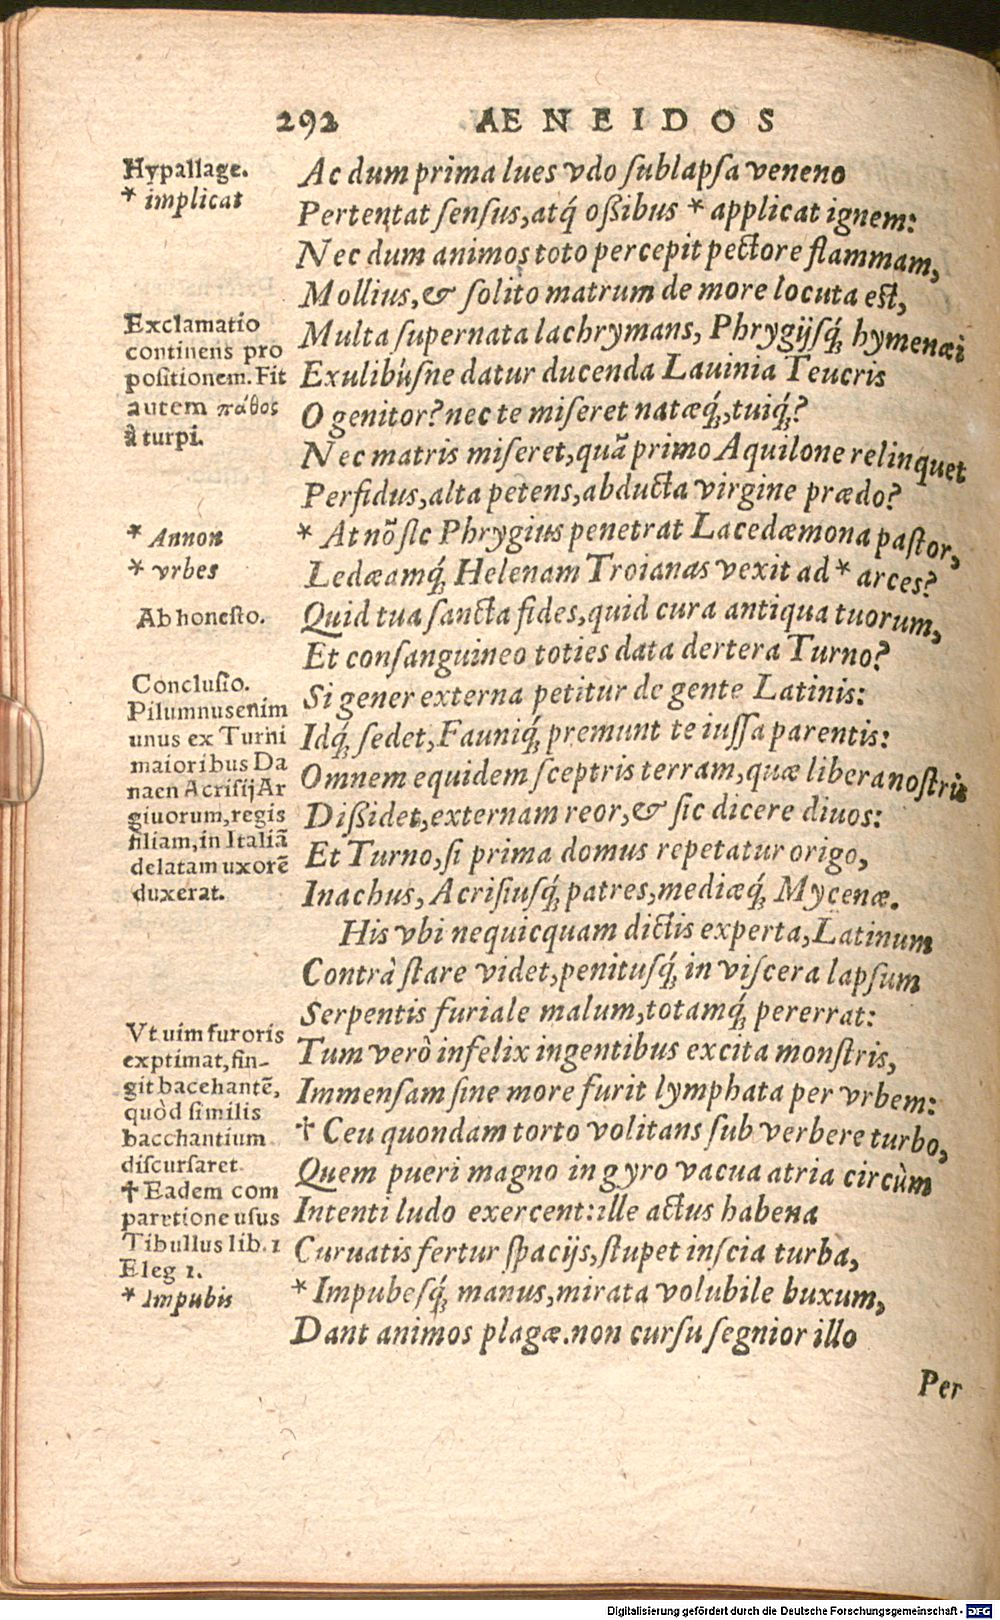 292 AENEIDOS
Hypallage.
* implicat
Exclamatio
continens pro
positionem. Fit
autem πάθος
à turpi.
* Annon
* vrbes
Ab honesto.
Conclusio.
Pilumnus enim
unus ex Turni
maioribus Da
naen Acrisij Ar
giuorum, regis
filiam, in Italiā
delatam uxorē
duxerat.
Vt uim furoris
exptimat, fin-
git bacehantē,
quòd similis
bacchantium
discursaret.
† Eadem com
paretione usus
Tibullus lib. 1
Eleg 1.
* Impubis
Ac dum prima lues vdo sublapsa veneno
Pertentat sensus, atq́ ossibus * applicat ignem:
Nec dum animos toto percepit pectore flammam,
Mollius, & solito matrum de more locuta est,
Multa super nata lachrymans, Phrygijsq́; hymenæi
Exulibúsne datur ducenda Lauinia Teucris
O genitor? nec te miseret natæq́;, tuiq́;?
Nec matris miseret, quā primo Aquilone relinquet
Perfidus, alta petens, abducta virgine prædo?
* At nō sic Phrygius penetrat Lacedæmona pastor,
Ledæamq́; Helenam Troianas vexit ad * arces?
Quid tua sancta fides, quid cura antiqua tuorum,
Et consanguineo toties data dertera Turno?
Si gener externa petitur de gente Latinis:
Idq́; sedet, Fauniq́; premunt te iussa parentis:
Omnem equidem sceptris terram, quæ libera nostris
Dissidet, externam reor, & sic dicere diuos:
Et Turno, si prima domus repetatur origo,
Inachus, Acrisiusq́; patres, mediæq́; Mycenæ.
His vbi nequicquam dictis experta, Latinum
Contrà stare videt, penitusq́; in viscera lapsum
Serpentis furiale malum, totamq́; pererrat:
Tum verò infelix ingentibus excita monstris,
Immensam sine more furit lymphata per vrbem:
† Ceu quondam torto volitans sub verbere turbo,
Quem pueri magno in gyro vacua atria circùm
Intenti ludo exercent: ille actus habena
Curuatis fertur spacijs, stupet inscia turba,
* Impubesq́; manus, mirata volubile buxum,
Dant animos plagæ. non cursu segnior illo
Per
Digitalisierung gefördert durch die Deutsche Forschungsgemeinschaft - DFG